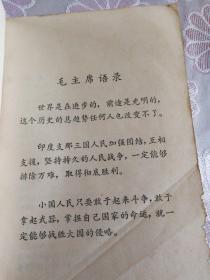 毛主席语录
世界是在进步的，前途是光明的，
这个历史的总趋势任何人也改变不了。
印度支那三国人民加强团结，互相
支援，坚持持久的人民战争，一定能够
排除万难，取得彻底胜利。
小国人民只要敢于起来斗争，敢于
拿起武器，掌握自己国家的命运，就一
定能够战胜大国的侵略。